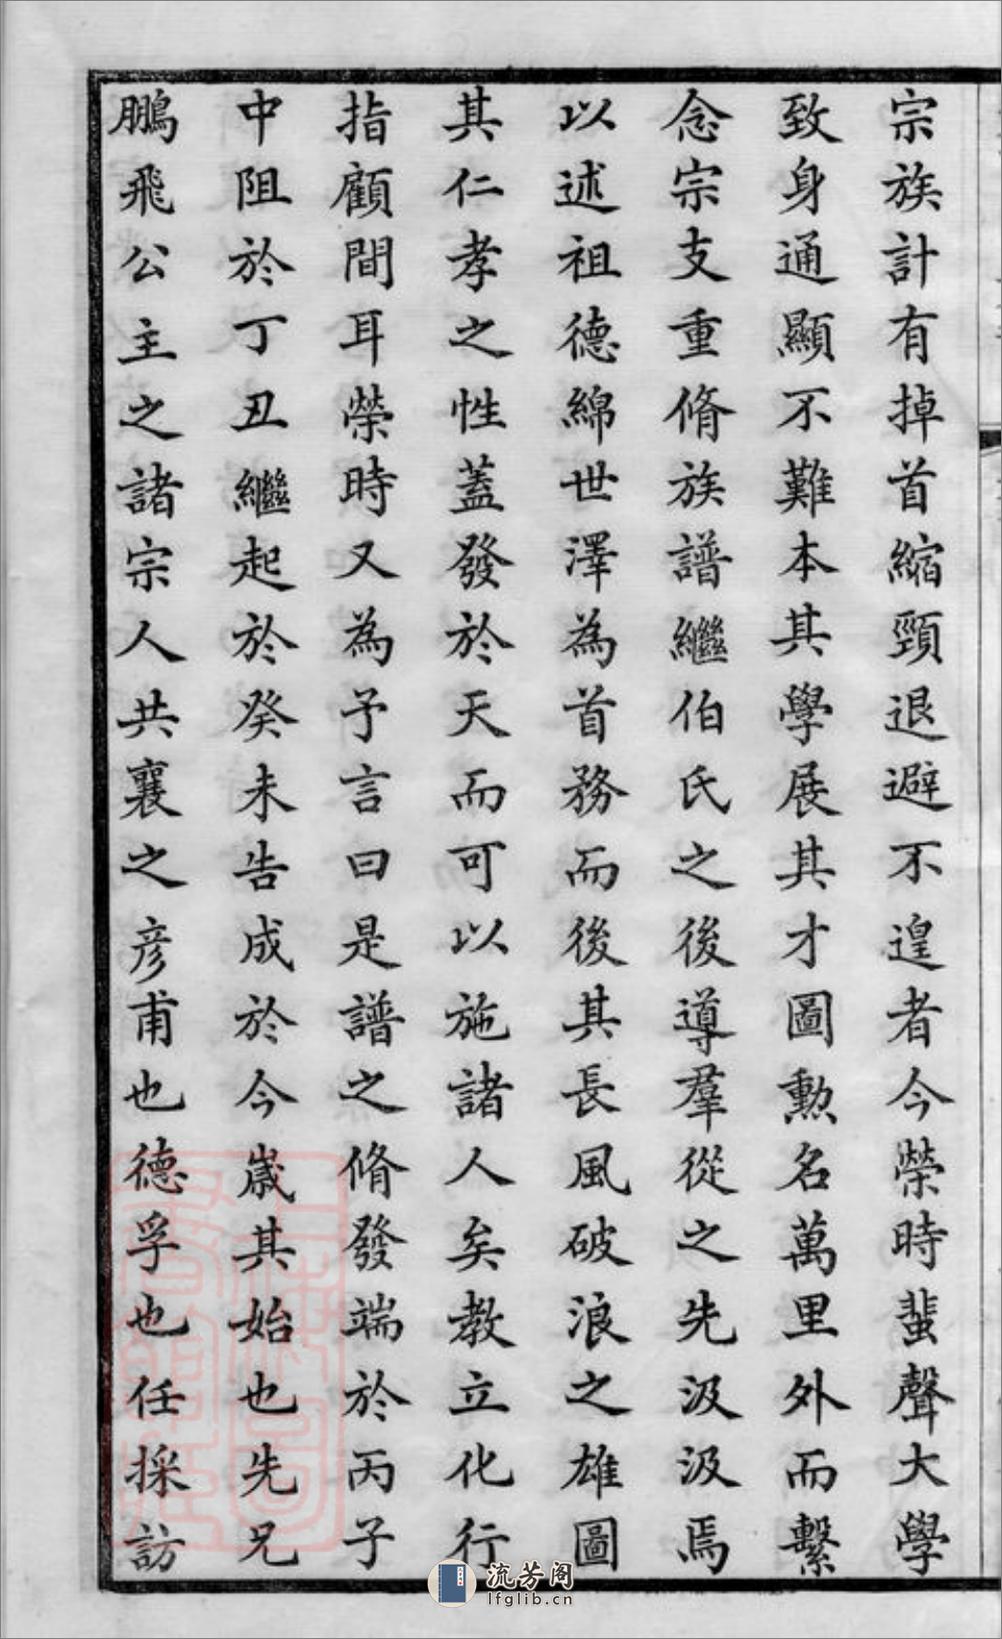 宗族計有掉首縮頸退避不遑者今榮時蜚聲大學
致身通顯不難本其學展其才圖勲名萬里外而繫
念宗支重脩族譜繼伯氏之後導羣從之先汲汲焉
以述祖德綿世澤為首務而後其長風破浪之雄圖
其仁孝之性蓋發於天而可以施諸人矣教立化行
指顧間耳榮時又為予言曰是譜之脩發端於丙子
中阻於丁丑繼起於癸未告成於今嵗其始也先兄
鵬飛公主之諸宗人共襄之彦甫也德孚也任採訪
流芳阁
lfglib.cn